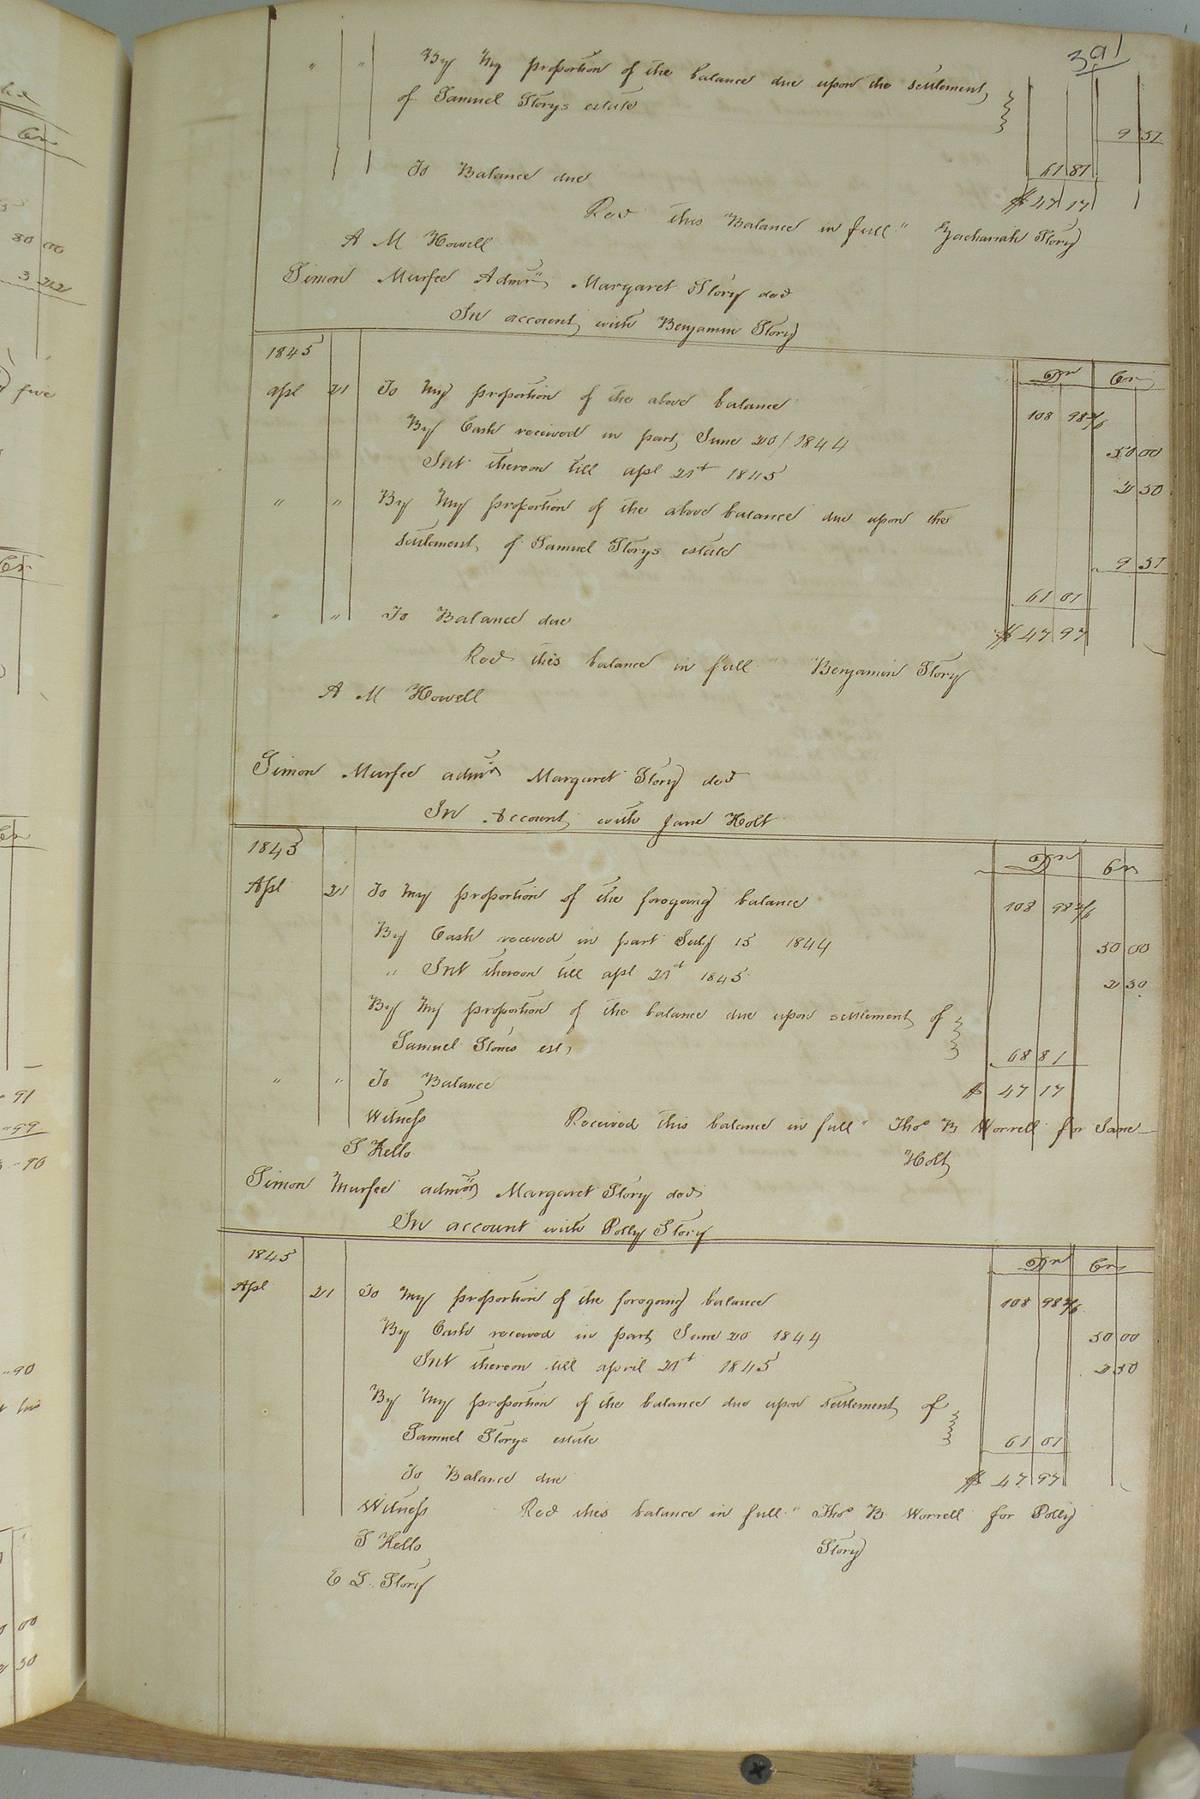 391
" " By my proportion of the balance due upon the settlement
of Samuel Storys estate 9 51
To Balance due 61 81
$ 47 17
Recd this Balance in full " Zachariah Story
A M Howell
Simon Murfee Admr Margaret Story decd
In account with Benjamin Story
1845 Dr Cr
apl 21 To my proportion of the above balance 108 98
By Cash received in part June 20/1844 50 00
Int thereon till apl 21st 1845 2 50
" " By my proportion of the above balance due upon the
settlement of Samuel Storys estate 9 51
61 01
" " To Balance due $ 47 97
Recd this balance in full " Benjamin Story
A M Howell
Simon Murfee admr Margaret Story decd
In Account with Jane Holt
1845 Dr Cr
Apl 21 To my proportion of the foregoing balance 108 98
By Cash receved in part July 15 1844 50 00
" Int thereon till apl 21st 1845 2 50
By my proportion of the balance due upon settlement of
Samuel Storys est, 68 81
" " To Balance $ 47 17
Witness Received this balance in full " Thos B Worrell for Jane
S Kello Holt
Simon Murfee admor Margaret Story decd
In account with Polly Story
1845 Dr Cr
Apl 21 To my proportion of the foregoing balance 108 98
By Cash received in part June 20 1844 50 00
Int thereon till april 21st 1845 2 50
By my proportion of the balance due upon settlement of
Samuel Storys estate 61 01
To Balance due $ 47 97
Witness Recd this balance in full " Thos B Worrell for Polly
S Kello Story
E L Story